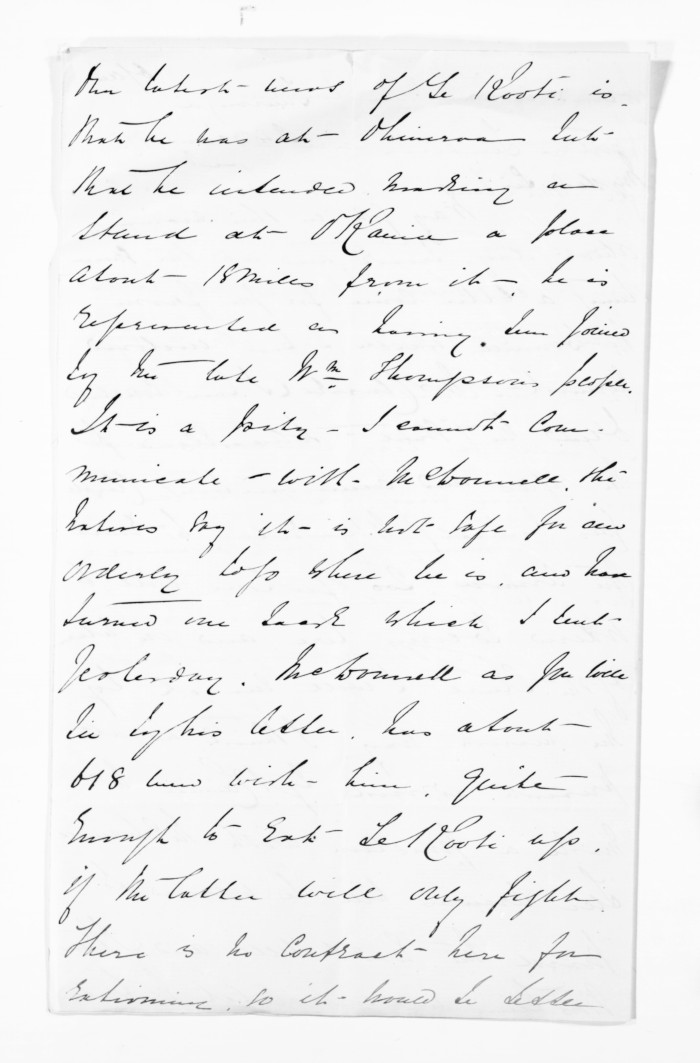 Our latest news of Te Kooti is
that he was at Ohineroa but
that he intended making a
stand at OKauia a place
about 18 miles from it - he is
represented as having been joined
by the late Wm Thompsons people.
It is a pity - I cannot com-
municate - with - McDonnell, the
Natives say it - is not safe for an
orderly to go where he is, and have
turned one back which I sent
yesterday. McDonnell as you will
see by his letter, has about
618 men with - him, quite
enough to eat Te Kooti up,
if the latter will only fight.
There is no contract here for
rationing, so it - would be better